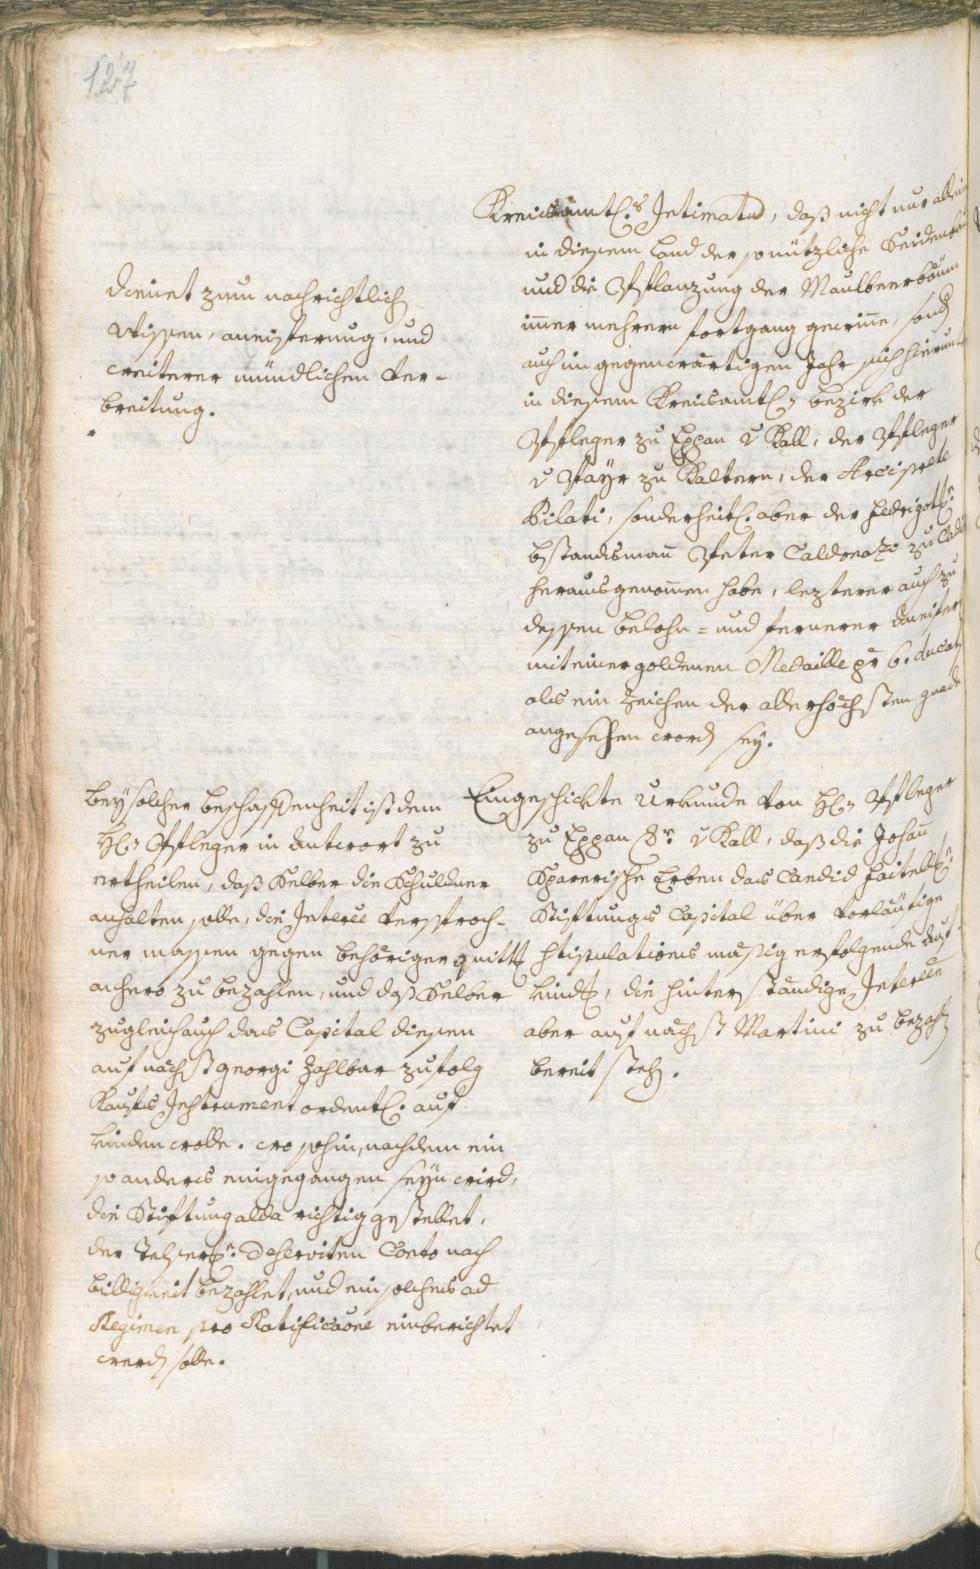 127
Kreisämtl.s Intimatum, daß nicht nur allein
in diesem Land der so nützliche Seidenbau
und die Pflanzung der Maulbeerbäum
immer mehrern fortgang gewinne, sond
auch in gegenwärtigen Jahr sich hierunter
in diesem Kreisamtl. bezirk der
Pfleger zu Eppan v Kall, der Pfleger
v Payr zu Kaltern, der Arciprete
Pilati, sonderheitl. aber der Fedrigott.
bstandsmann Peter Caldonazo zu
herausgenommen habe, lezterer auch zu
dessen belohn= und fernerer Aneifer
mit einer goldenen Medaille pr 6. ducat
als ein Zeichen der allerhöchsten gnade
angesehen word sey.
dienet zum nachrichtlich
Wissen, aneiferung, und
weiterer mündlichen Ver-
breitung.
Eingeschickte Urkunde von H. Pfleger
zu Eppan v Kall, daß die Johann
Sparerische Erben das Candid
Stiftungs Capital über vorläufige
stipulations mäsig erfolgende Auf-
kindt, die hinterständige Interesse
aber auf nächst Martini zu bezahl
bereit steh.
bey solcher beschaffenheit ist dem
H. Pfleger in Antwort zu
ertheilen, daß Selber die Schuldner
anhalten solle, die Interesse versproch-
ner massen gegen behöriger quitt
anhero zu bezahlen, und daß Selber
zugleich auch das Capital diesen
auf nächst georgi zahlbar zufolg
Kaufs Instrument ordentl. auf
kinden wolle. wo sohin, nachdem ein
so anders eingegangen seyn wird,
die Stiftung alda richtig gestellet,
der Deserviten Conto nach
billigkeit bezahlet, und ein solches ad
Regimen pro Ratificaone einberichtet
werd solle.